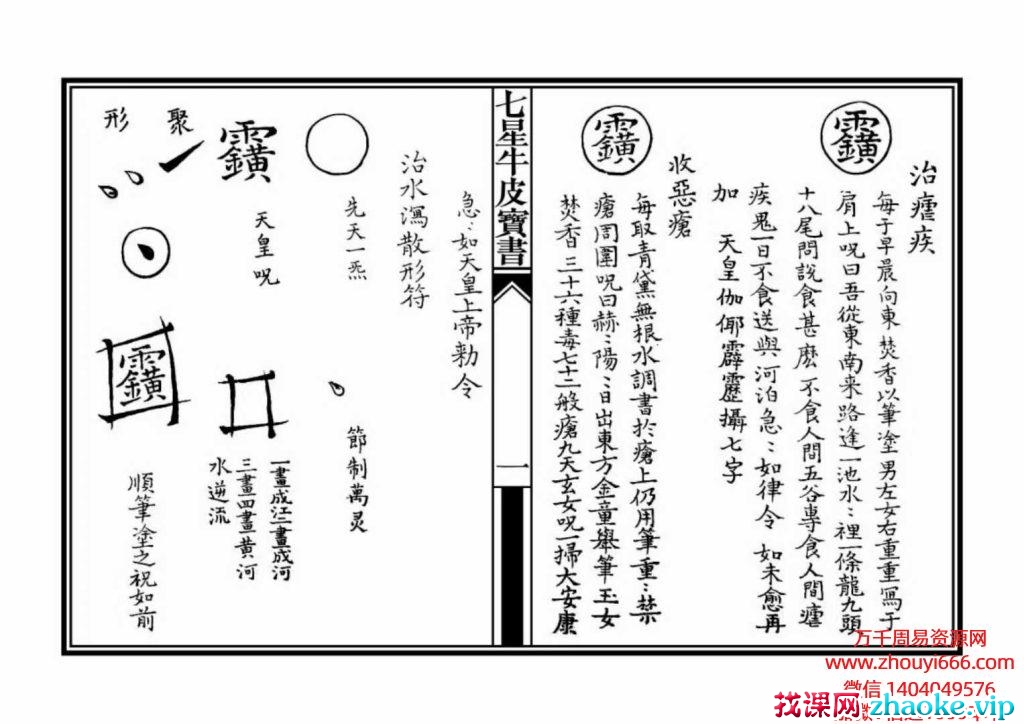 治瘧疾
每于早晨向東焚香以筆塗男左女右重重寫于
肩上呪曰吾從東南来路逢一池水〻裡一條龍九頭
十八尾問說食甚麽不食人間五谷專食人間瘧
疾鬼一日不食送與河泊急〻如律令 如未愈再
加 天皇伽倻霹靂攝七字
收惡瘡
每取青黛無根水調書於瘡上仍用筆重〻禁
瘡周圍呪曰赫〻陽〻日出東方金童舉筆玉女
焚香三十六種毒七十二般瘡九天玄女呪一掃大安康
七星牛皮寶書
一
急〻如天皇上帝勅令
治水瀉散形符
先天一炁
節制萬灵
天皇呪
一畫成江二畫成河
三畫四畫黄河
水逆流
聚
形
順筆塗之祝如前
万千周易资源网
www.zhouyi666.com
微信 1404049576
找课网zhaoke.vip